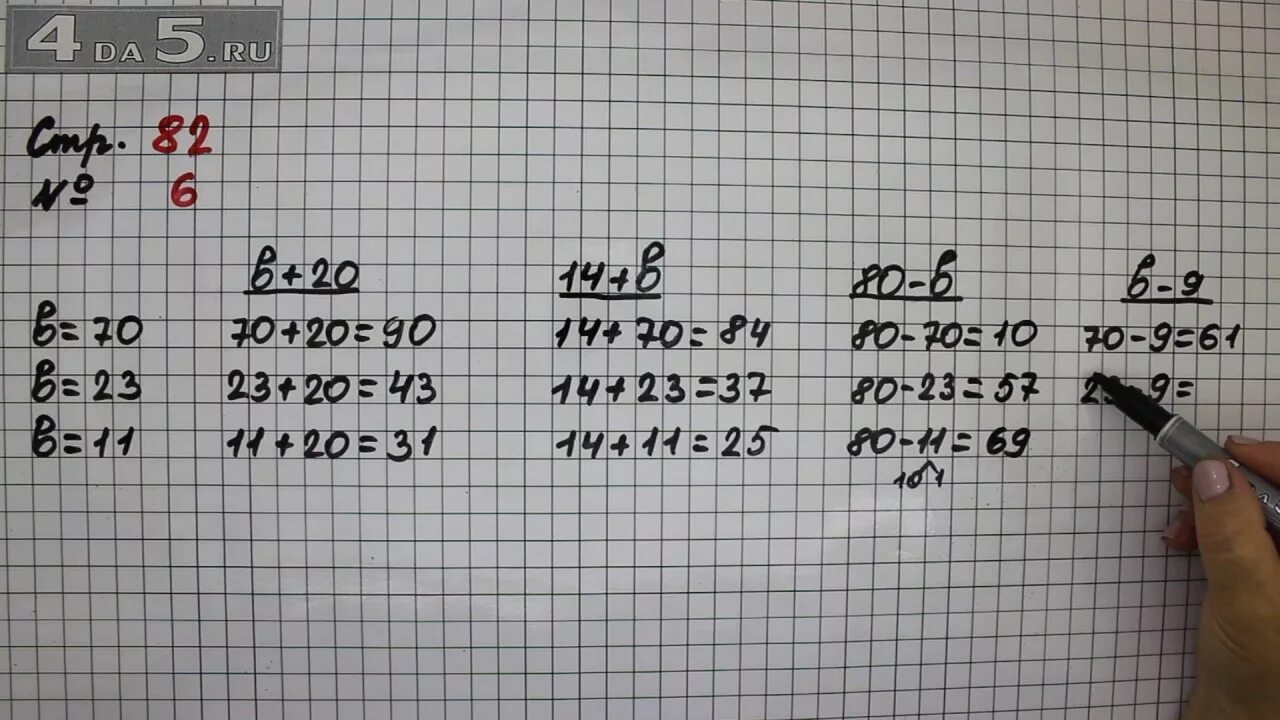 4DA5.RU
Стр. 82
№ 6
в+20 14+в 80-в в-9
в=70 70+20=90 14+70=84 80-70=10 70-9=61
в=23 23+20=43 14+23=37 80-23=57 23-9=
в=11 11+20=31 14+11=25 80-11=69
10 1